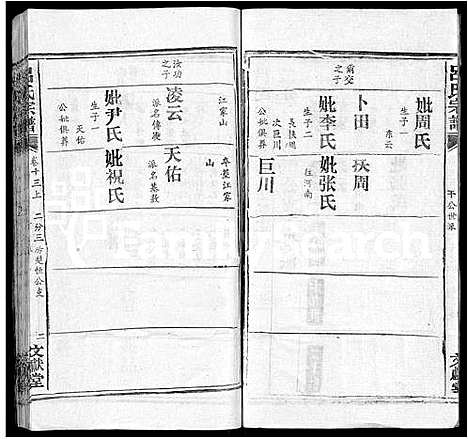 妣周氏
生子一
東云
霸交
之子
卜田
妣李氏
生子二
長扶周
次巨川
扶周
妣张氏
往河南
巨川
千公世系
江家山
汝功
之子
凌云
派名傳俊
妣尹氏
生子一
天佑
公妣俱葬
卒葬江家
山
天佑
派名基敖
妣祝氏
公妣俱葬
呂氏宗譜
卷十三上
二分三房楚恬公支
二
文獻堂
FamilySearch